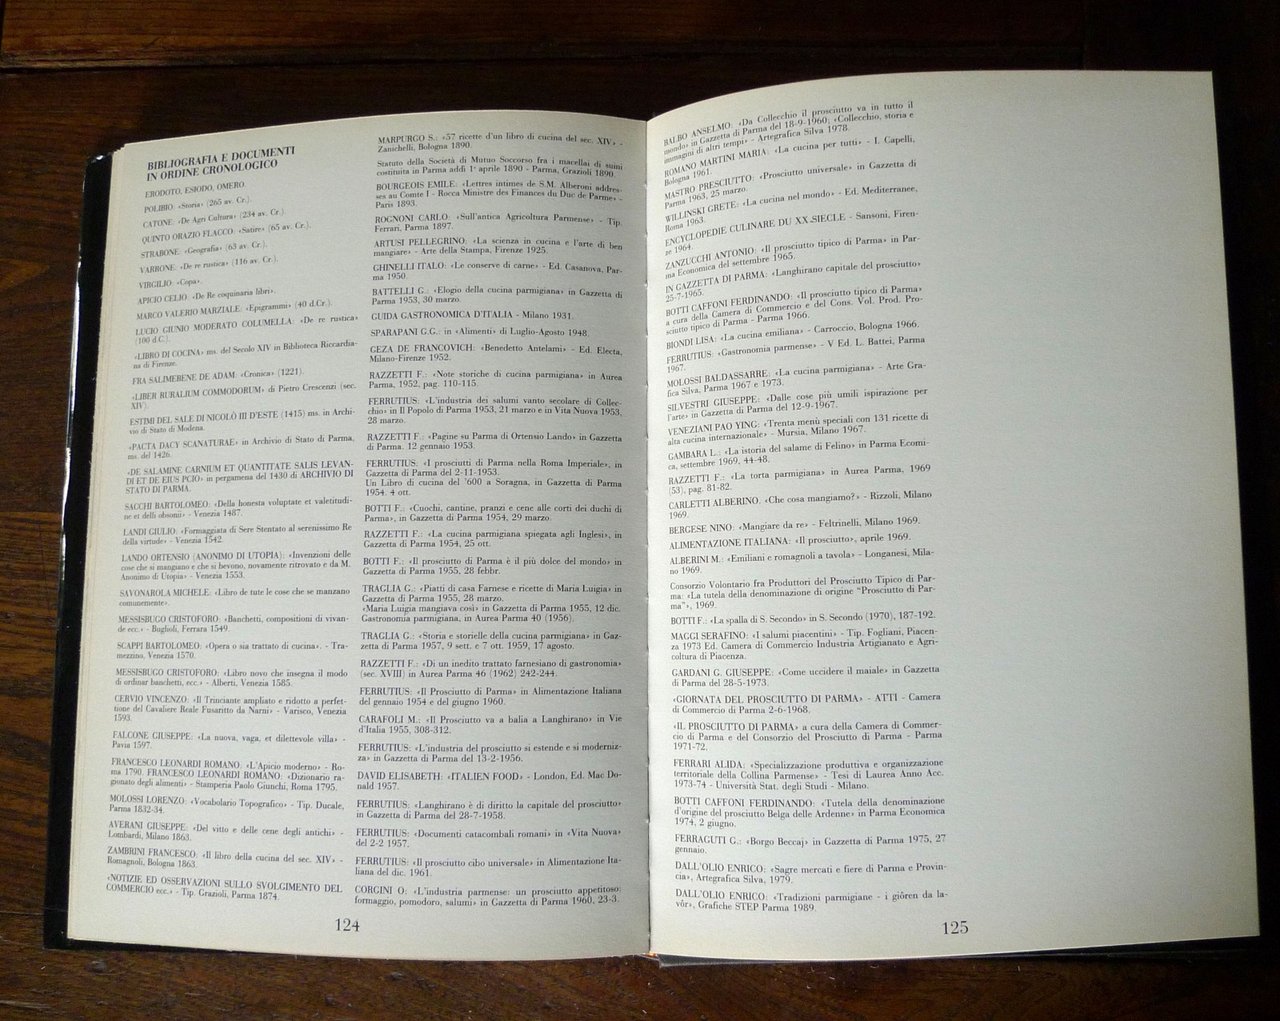 BIBLIOGRAFIA E DOCUMENTI
IN ORDINE CRONOLOGICO
ERODOTO, ESIODO, OMERO.
POLIBIO: «Storia» (265 av. Cr.).
CATONE: «De Agri Cultura» (234 av. Cr.)
QUINTO ORAZIO FLACCO: «Satire» (65 av. Cr.).
STRABONE: «Geografia» (63 av. Cr.).
VARRONE: «De re rustica» (116 av. Cr.).
VIRGILIO: «Copa».
APICIO CELIO: «De Re coquinaria libri».
MARCO VALERIO MARZIALE: «Epigrammi» (40 d.Cr.).
LUCIO GIUNIO MODERATO COLUMELLA: «De re rustica»
(100 d.C.).
«LIBRO DI COCINA» ms. del Secolo XIV in Biblioteca Riccardia-
na di Firenze.
FRA SALIMBENE DE ADAM: «Cronica» (1221).
«LIBER RURALIUM COMMODORUM» di Pietro Crescenzi (sec.
XIV).
ESTIMI DEL SALE DI NICOLÒ III D'ESTE (1415) ms. in Archi-
vio di Stato di Modena.
«PACTA DACY SCANATURAE» in Archivio di Stato di Parma,
ms. del 1426.
«DE SALAMINE CARNIUM ET QUANTITATE SALIS LEVAN-
DI ET DE EIUS PCIO» in pergamena del 1430 di ARCHIVIO DI
STATO DI PARMA.
SACCHI BARTOLOMEO: «Della honesta voluptate et valetitudi-
ne et delli obsonii» - Venezia 1487.
LANDI GIULIO: «Formaggiata di Sere Stentato al serenissimo Re
della virtude» - Venezia 1542.
LANDO ORTENSIO (ANONIMO DI UTOPIA): «Invenzioni delle
cose che si mangiano e che si bevono, novamente ritrovato e da M.
Anonimo di Utopia» - Venezia 1553.
SAVONAROLA MICHELE: «Libro de tute le cose che se manzano
comunemente».
MESSISBUGO CRISTOFORO: «Banchetti, compositioni di vivan-
de ecc.» - Buglioli, Ferrara 1549.
SCAPPI BARTOLOMEO: «Opera o sia trattato di cucina». - Tra-
mezzino, Venezia 1570.
MESSISBUGO CRISTOFORO: «Libro novo che insegna il modo
di ordinar banchetti, ecc.» - Alberti, Venezia 1585.
CERVIO VINCENZO: «Il Trinciante ampliato e ridotto a perfet-
tione del Cavaliere Reale Fusaritto da Narni» - Varisco, Venezia
1593.
FALCONE GIUSEPPE: «La nuova, vaga, et dilettevole villa» -
Pavia 1597.
FRANCESCO LEONARDI ROMANO: «L'Apicio moderno» - Ro-
ma 1790. FRANCESCO LEONARDI ROMANO: «Dizionario ra-
gionato degli alimenti» - Stamperia Paolo Giunchi, Roma 1795.
MOLOSSI LORENZO: «Vocabolario Topografico» - Tip. Ducale,
Parma 1832-34.
AVERANI GIUSEPPE: «Del vitto e delle cene degli antichi» -
Lombardi, Milano 1863.
ZAMBRINI FRANCESCO: «Il libro della cucina del sec. XIV» -
Romagnoli, Bologna 1863.
«NOTIZIE ED OSSERVAZIONI SULLO SVOLGIMENTO DEL
COMMERCIO ecc.» - Tip. Grazioli, Parma 1874.
MARPURGO S.: «57 ricette d'un libro di cucina del sec. XIV» -
Zanichelli, Bologna 1890.
Statuto della Società di Mutuo Soccorso fra i macellai di suini
costituita in Parma addì 1° aprile 1890 - Parma, Grazioli 1890.
BOURGEOIS EMILE: «Lettres intimes de S.M. Alberoni addres-
ses au Comte I - Rocca Ministre des Finances du Duc de Parme» -
Paris 1893.
ROGNONI CARLO: «Sull'antica Agricoltura Parmense» - Tip.
Ferrari, Parma 1897.
ARTUSI PELLEGRINO: «La scienza in cucina e l'arte di ben
mangiare» - Arte della Stampa, Firenze 1925.
GHINELLI ITALO: «Le conserve di carne» - Ed. Casanova, Par-
ma 1950.
BATTELLI G.: «Elogio della cucina parmigiana» in Gazzetta di
Parma 1953, 30 marzo.
GUIDA GASTRONOMICA D'ITALIA - Milano 1931.
SPARAPANI G.G.: in «Alimenti» di Luglio-Agosto 1948.
GEZA DE FRANCOVICH: «Benedetto Antelami» - Ed. Electa,
Milano-Firenze 1952.
RAZZETTI F.: «Note storiche di cucina parmigiana» in Aurea
Parma, 1952, pag. 110-115.
FERRUTIUS: «L'industria dei salumi vanto secolare di Collec-
chio» in Il Popolo di Parma 1953, 21 marzo e in Vita Nuova 1953,
28 marzo.
RAZZETTI F.: «Pagine su Parma di Ortensio Lando» in Gazzetta
di Parma. 12 gennaio 1953.
FERRUTIUS: «I prosciutti di Parma nella Roma Imperiale», in
Gazzetta di Parma del 2-11-1953.
Un Libro di cucina del '600 a Soragna, in Gazzetta di Parma
1954. 4 ott.
BOTTI F.: «Cuochi, cantine, pranzi e cene alle corti dei duchi di
Parma», in Gazzetta di Parma 1954, 29 marzo.
RAZZETTI F.: «La cucina parmigiana spiegata agli Inglesi», in
Gazzetta di Parma 1954, 25 ott.
BOTTI F.: «Il prosciutto di Parma è il più dolce del mondo» in
Gazzetta di Parma 1955, 28 febbr.
TRAGLIA G.: «Piatti di casa Farnese e ricette di Maria Luigia» in
Gazzetta di Parma 1955, 28 marzo.
«Maria Luigia mangiava così» in Gazzetta di Parma 1955, 12 dic.
Gastronomia parmigiana, in Aurea Parma 40 (1956).
TRAGLIA G.: «Storia e storielle della cucina parmigiana» in Gaz-
zetta di Parma 1957, 9 sett. e 7 ott. 1959, 17 agosto.
RAZZETTI F.: «Di un inedito trattato farnesiano di gastronomia»
(sec. XVIII) in Aurea Parma 46 (1962) 242-244.
FERRUTIUS: «Il Prosciutto di Parma» in Alimentazione Italiana
del gennaio 1954 e del giugno 1960.
CARAFOLI M.: «Il Prosciutto va a balia a Langhirano» in Vie
d'Italia 1955, 308-312.
FERRUTIUS: «L'industria del prosciutto si estende e si moderniz-
za» in Gazzetta di Parma del 13-2-1956.
DAVID ELISABETH: «ITALIEN FOOD» - London, Ed. Mac Do-
nald 1957.
FERRUTIUS: «Langhirano è di diritto la capitale del prosciutto»
in Gazzetta di Parma del 28-7-1958.
FERRUTIUS: «Documenti catacombali romani» in «Vita Nuova»
del 2-2 1957.
FERRUTIUS: «Il prosciutto cibo universale» in Alimentazione Ita-
liana del dic. 1961.
CORGINI O: «L'industria parmense: un prosciutto appetitoso:
formaggio, pomodoro, salumi» in Gazzetta di Parma 1960, 23-3.
124
BALBO ANSELMO: «Da Collecchio il prosciutto va in tutto il
mondo» in Gazzetta di Parma del 18-9-1960; «Collecchio, storia e
immagini di altri tempi» - Artegrafica Silva 1978.
ROMANO MARTINI MARIA: «La cucina per tutti» - I. Capelli,
Bologna 1961.
MASTRO PRESCIUTTO: «Prosciutto universale» in Gazzetta di
Parma 1963, 25 marzo.
WILLINSKI GRETE: «La cucina nel mondo» - Ed. Mediterranee,
Roma 1963.
ENCYCLOPEDIE CULINARE DU XX SIECLE - Sansoni, Firen-
ze 1964.
ZANZUCCHI ANTONIO: «Il prosciutto tipico di Parma» in Par-
ma Economica del settembre 1965.
IN GAZZETTA DI PARMA: «Langhirano capitale del prosciutto»
25-7-1965.
BOTTI CAFFONI FERDINANDO: «Il prosciutto tipico di Parma»
a cura della Camera di Commercio e del Cons. Vol. Prod. Pro-
sciutto tipico di Parma - Parma 1966.
BIONDI LISA: «La cucina emiliana» - Carroccio, Bologna 1966.
FERRUTIUS: «Gastronomia parmense» - V Ed. L. Battei, Parma
1967.
MOLOSSI BALDASSARRE: «La cucina parmigiana» - Arte Gra-
fica Silva, Parma 1967 e 1973.
SILVESTRI GIUSEPPE: «Dalle cose più umili ispirazione per
l'arte» in Gazzetta di Parma del 12-9-1967.
VENEZIANI PAO YING: «Trenta menù speciali con 131 ricette di
alta cucina internazionale» - Mursia, Milano 1967.
GAMBARA L.: «La istoria del salame di Felino» in Parma Ecomi-
ca, settembre 1969, 44-48.
RAZZETTI F.: «La torta parmigiana» in Aurea Parma, 1969
(53), pag. 81-82.
CARLETTI ALBERINO. «Che cosa mangiamo?» - Rizzoli, Milano
1969.
BERGESE NINO: «Mangiare da re» - Feltrinelli, Milano 1969.
ALIMENTAZIONE ITALIANA: «Il prosciutto», aprile 1969.
ALBERINI M.: «Emiliani e romagnoli a tavola» - Longanesi, Mila-
no 1969.
Consorzio Volontario fra Produttori del Prosciutto Tipico di Par-
ma: «La tutela della denominazione di origine "Prosciutto di Par-
ma"», 1969.
BOTTI F.: «La spalla di S. Secondo» in S. Secondo (1970), 187-192.
MAGGI SERAFINO: «I salumi piacentini» - Tip. Fogliani, Piacen-
za 1973 Ed. Camera di Commercio Industria Artigianato e Agri-
coltura di Piacenza.
GARDANI G. GIUSEPPE: «Come uccidere il maiale» in Gazzetta
di Parma del 28-5-1973.
«GIORNATA DEL PROSCIUTTO DI PARMA» - ATTI - Camera
di Commercio di Parma 2-6-1968.
«IL PROSCIUTTO DI PARMA» a cura della Camera di Commer-
cio di Parma e del Consorzio del Prosciutto di Parma - Parma
1971-72.
FERRARI ALIDA: «Specializzazione produttiva e organizzazione
territoriale della Collina Parmense» - Tesi di Laurea Anno Acc.
1973-74 - Università Stat. degli Studi - Milano.
BOTTI CAFFONI FERDINANDO: «Tutela della denominazione
d'origine del prosciutto Belga delle Ardenne» in Parma Economica
1974, 2 giugno.
FERRAGUTI G.: «Borgo Beccaj» in Gazzetta di Parma 1975, 27
gennaio.
DALL'OLIO ENRICO: «Sagre mercati e fiere di Parma e Provin-
cia», Artegrafica Silva, 1979.
DALL'OLIO ENRICO: «Tradizioni parmigiane - i giören da la-
vôr», Grafiche STEP Parma 1989.
125